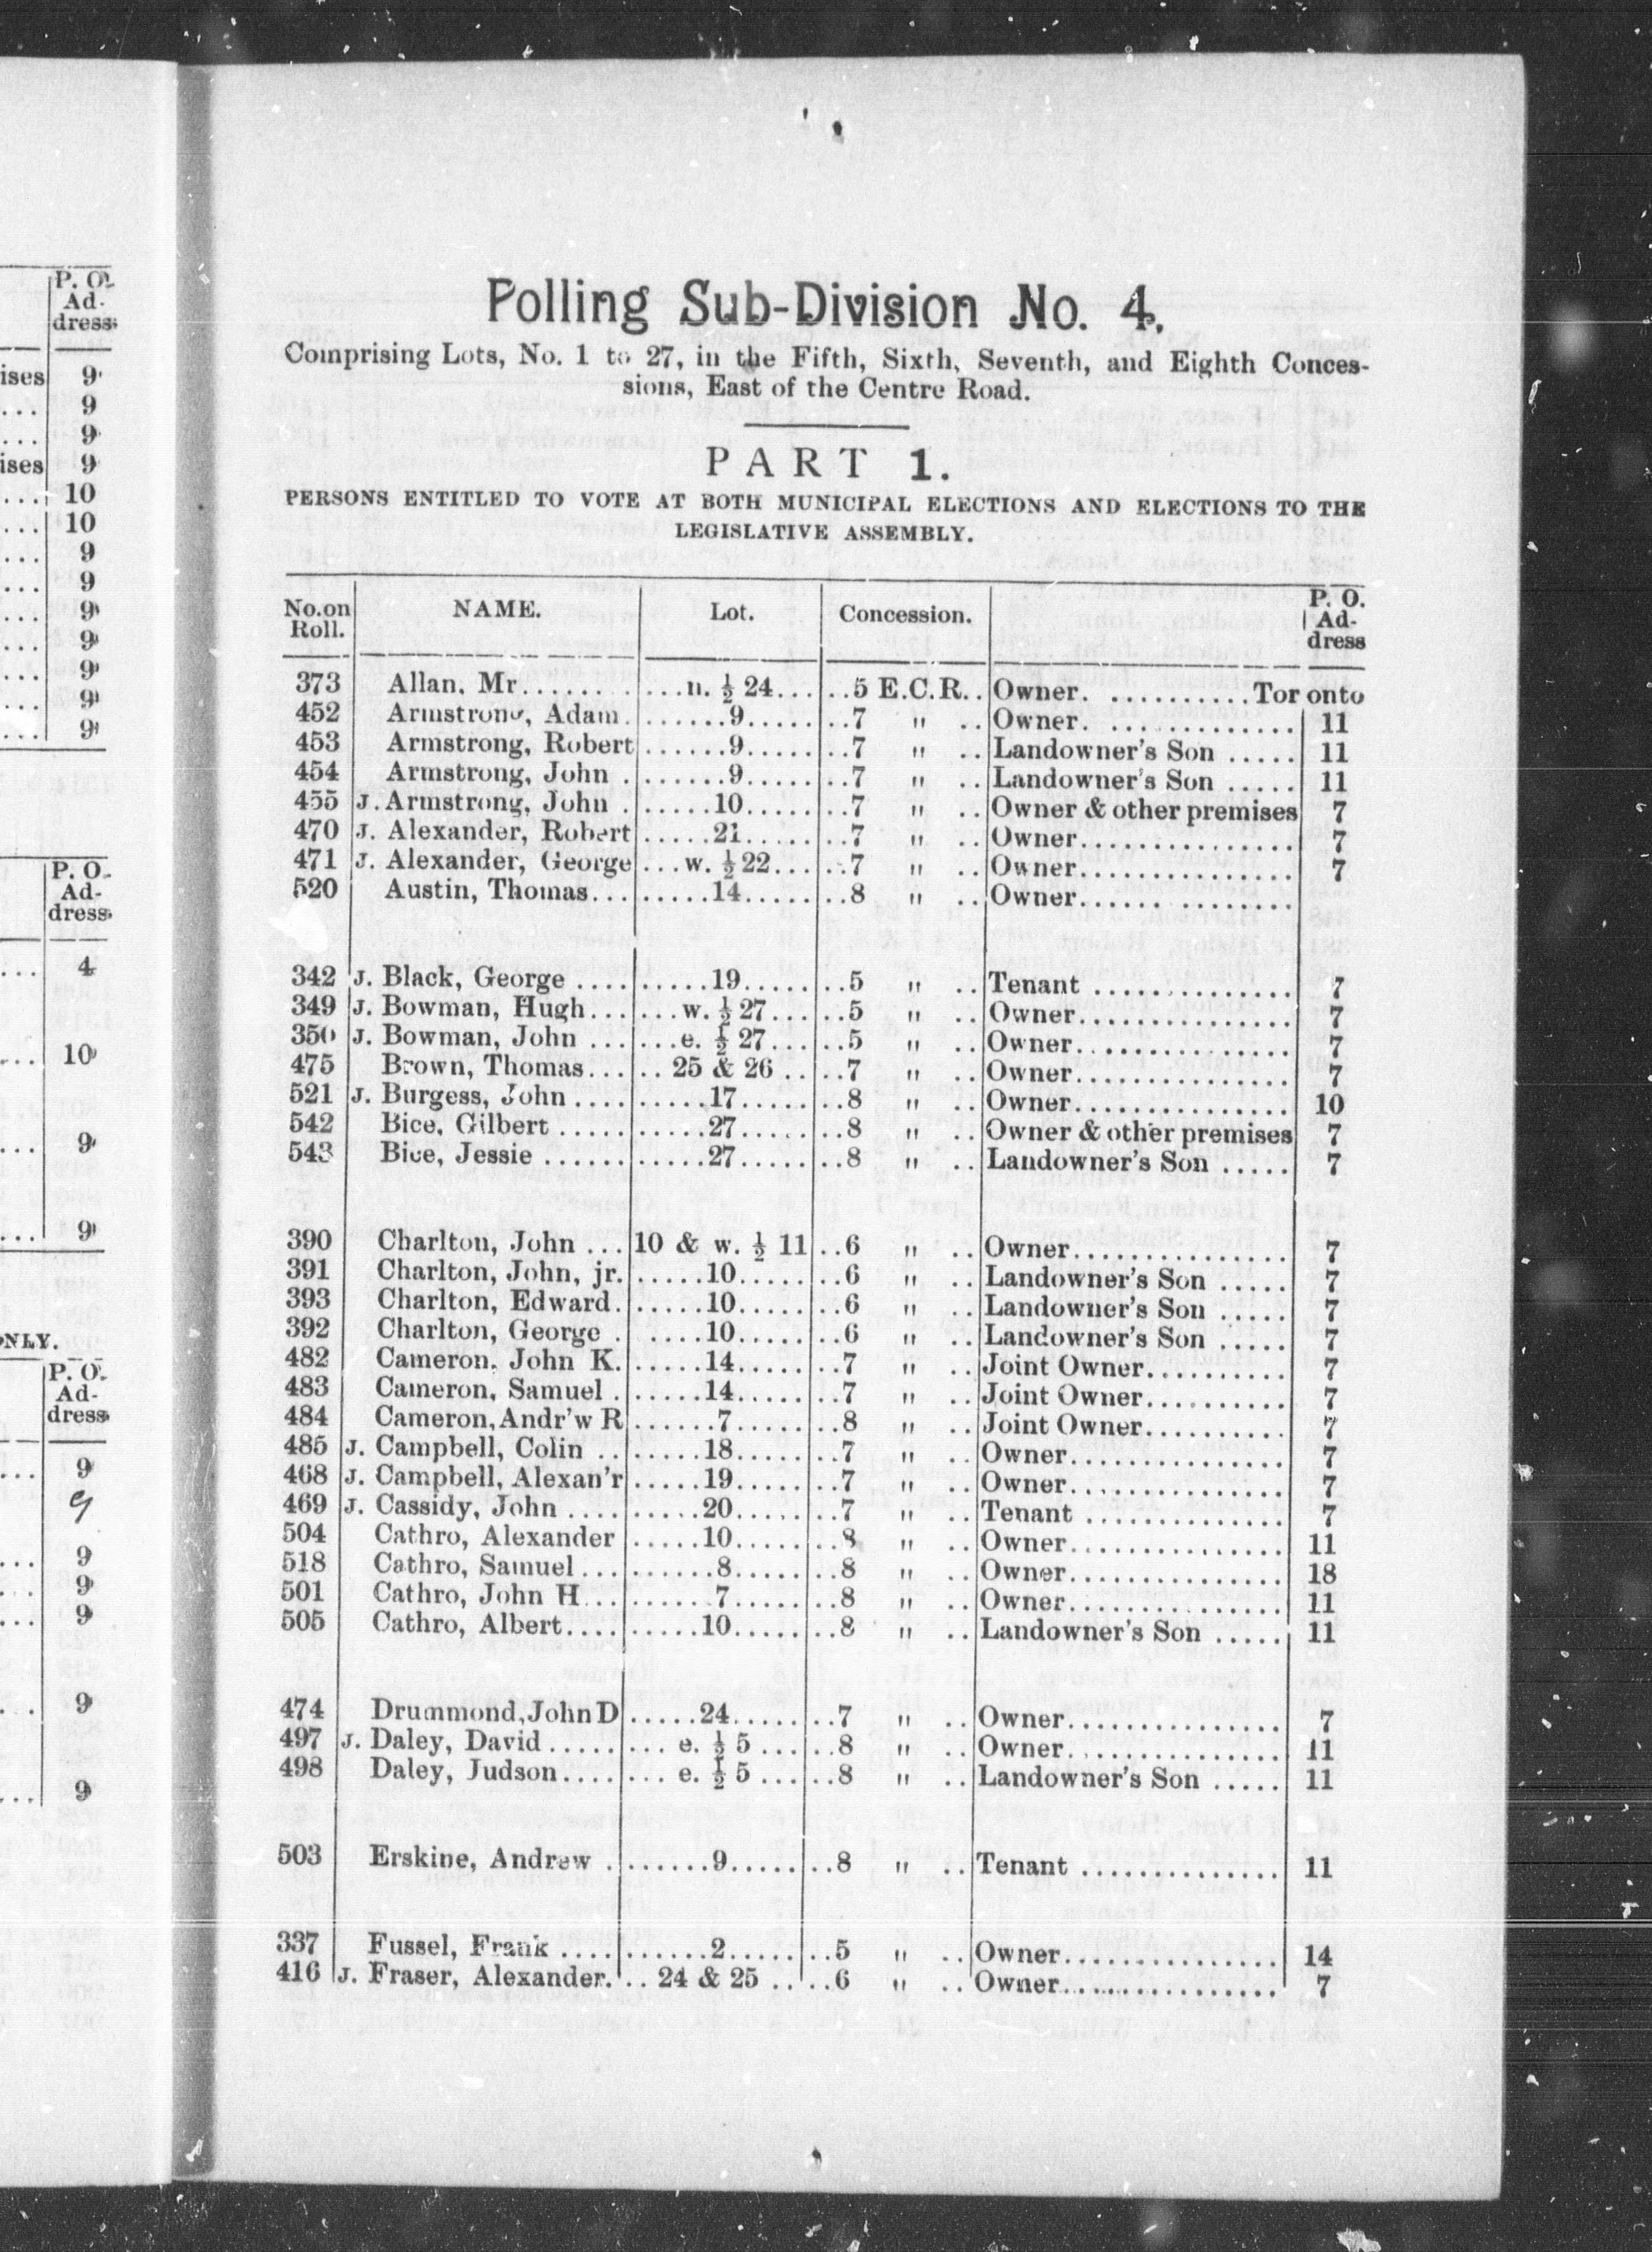 P. O.
Ad-
dress
ises 9
... 9
... 9
ises 9
... 10
... 10
... 9
... 9
... 9
... 9
... 9
... 9
... 9
P. O.
Ad-
dress
... 4
... 10
... 9
... 9
ONLY.
P. O.
Ad-
dress
... 9
9
... 9
... 9
... 9
... 9
... 9
Polling Sub-Division No. 4.
Comprising Lots, No. 1 to 27, in the Fifth, Sixth, Seventh, and Eighth Conces-
sions, East of the Centre Road.
PART 1.
PERSONS ENTITLED TO VOTE AT BOTH MUNICIPAL ELECTIONS AND ELECTIONS TO THE
LEGISLATIVE ASSEMBLY.
No. on Roll. NAME. Lot. Concession. P. O. Ad- dress
373 Allan, Mr....... ...n. ½ 24... ..5 E.C.R.. Owner. ..........Toronto
452 Armstrong, Adam. ......9..... ..7 " .. Owner. ............. 11
453 Armstrong, Robert ......9..... ..7 " .. Landowner's Son ..... 11
454 Armstrong, John . ......9..... ..7 " .. Landowner's Son ..... 11
455 J. Armstrong, John . .....10..... ..7 " .. Owner & other premises 7
470 J. Alexander, Robert .....21..... ..7 " .. Owner............... 7
471 J. Alexander, George ...w. ½ 22... ..7 " .. Owner............... 7
520 Austin, Thomas... .....14..... ..8 " .. Owner...............
342 J. Black, George .... .....19..... ..5 " .. Tenant .............. 7
349 J. Bowman, Hugh... ...w. ½ 27... ..5 " .. Owner............... 7
350 J. Bowman, John ... ...e. ½ 27... ..5 " .. Owner............... 7
475 Brown, Thomas... .. 25 & 26 .. ..7 " .. Owner............... 7
521 J. Burgess, John .... .....17..... ..8 " .. Owner............... 10
542 Bice, Gilbert ..... .....27..... ..8 " .. Owner & other premises 7
543 Bice, Jessie ...... .....27..... ..8 " .. Landowner's Son ..... 7
390 Charlton, John ... 10 & w. ½ 11 ..6 " .. Owner............... 7
391 Charlton, John, jr. .....10..... ..6 " .. Landowner's Son ..... 7
393 Charlton, Edward. .....10..... ..6 " .. Landowner's Son ..... 7
392 Charlton, George . ....10..... ..6 " .. Landowner's Son ..... 7
482 Cameron, John K. .....14..... ..7 " .. Joint Owner.......... 7
483 Cameron, Samuel . .....14..... ..7 " .. Joint Owner.......... 7
484 Cameron, Andr'w R ......7..... ..8 " .. Joint Owner.......... 7
485 J. Campbell, Colin .. .....18..... ..7 " .. Owner............... 7
468 J. Campbell, Alexan'r .....19..... ..7 " .. Owner............... 7
469 J. Cassidy, John .... .....20..... ..7 " .. Tenant .............. 7
504 Cathro, Alexander .....10..... ..8 " .. Owner............... 11
518 Cathro, Samuel... ......8..... ..8 " .. Owner............... 18
501 Cathro, John H... ......7..... ..8 " .. Owner............... 11
505 Cathro, Albert.... .....10..... ..8 " .. Landowner's Son ..... 11
474 Drummond, John D .....24..... ..7 " .. Owner............... 7
497 J. Daley, David ..... ... e. ½ 5 ... ..8 " .. Owner............... 11
498 Daley, Judson.... ... e. ½ 5 ... ..8 " .. Landowner's Son ..... 11
503 Erskine, Andrew . ......9..... ..8 " .. Tenant .............. 11
337 Fussel, Frank .... ......2..... ..5 " .. Owner............... 14
416 J. Fraser, Alexander. .. 24 & 25 .. ..6 " .. Owner............... 7